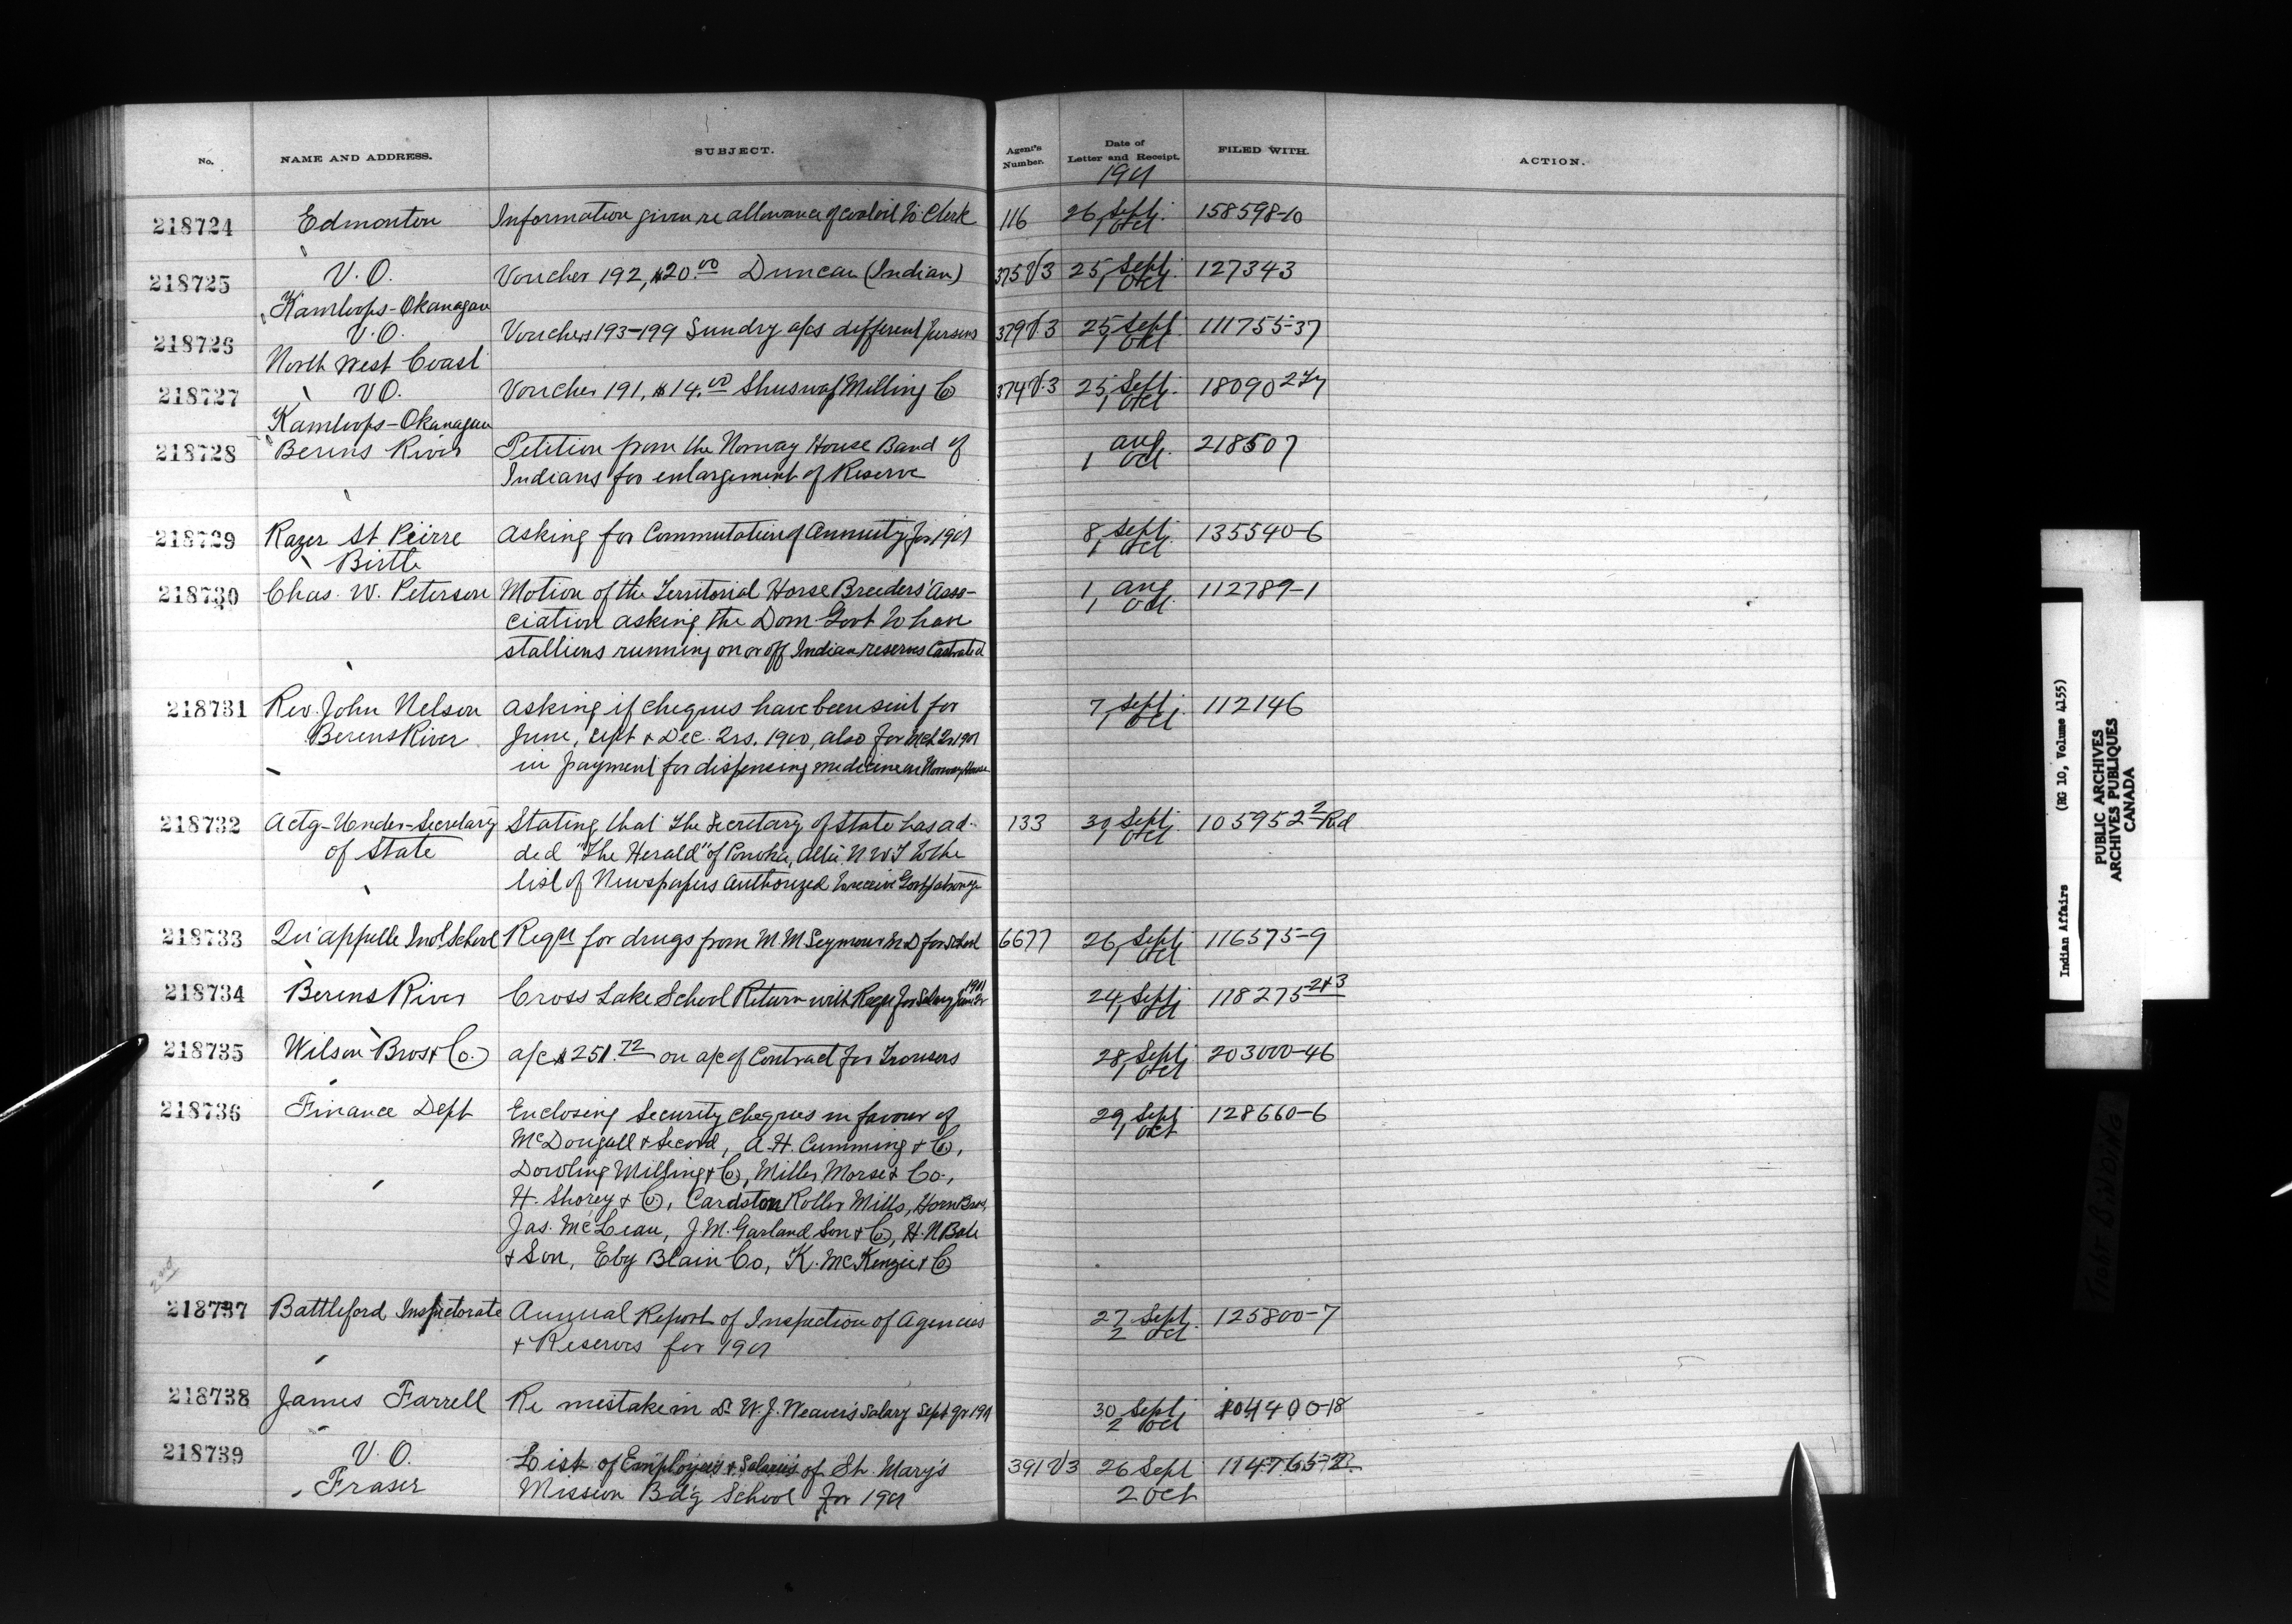 No. NAME AND ADDRESS. SUBJECT. Agent's Number. Date of Letter and Receipt. FILED WITH. ACTION.
1901
218724 Edmonton Information given re allowance of coaloil to Clerk 116 26 Sept. 158598-10
1 Oct
218725 V.O. Voucher 192, $20.00 Duncan (Indian) 375 V3 25 Sept. 127343
Kamloops-Okanagan 1 Oct
218726 V.O. Vouchers 193-199 Sundry a/cs different persons 379 V.3 25 Sept. 111755-37
North West Coast 1 Oct
218727 V.O. Voucher 191, $14.00 Shuswap Milling Co 374 V.3 25 Sept. 18090
Kamloops-Okanagan 1 Oct
218728 Berens River Petition from the Norway House Band of Aug. 218507
Indians for enlargement of Reserve 1 Oct
218729 Razer St Peirre Asking for Commutation of Annuity for 1901 8 Sept. 135540-6
Birtle 1 Oct
218730 Chas. W. Peterson Motion of the Territorial Horse Breeders' Asso- 1 Aug 112789-1
ciation asking the Dom. Govt to have 1 Oct
stallions running on or off Indian reserves Castrated
218731 Rev. John Nelson Asking if cheques have been sent for 7 Sept. 112146
Berens River June, Sept & Dec. 2rs. 1900, also for Mch 2r 1901 1 Oct
in payment for dispensing medicine at Norway House
218732 Actg-Under-Secretary Stating that the Secretary of State has ad- 133 30 Sept. 105952 2 Rd
of State ded "The Herald" of Ponoka, Alta. N W T to the 1 Oct
list of Newspapers Authorized to receive Govt patronage
218733 Qu'appelle Indl School Reqn for drugs from M M Seymour M.D for School 6677 26 Sept 116575-9
1 Oct
218734 Berens River Cross Lake School Return with Recpt for Salary June 2r 1901 24 Sept. 118275 2+3
1 Oct
218735 Wilson Bros & Co. a/c $251.72 on a/c of Contract for Trousers 28 Sept. 203000-46
1 Oct
218736 Finance Dept Enclosing Security cheques in favour of 29 Sept 128660-6
McDougall & Secord, A. H. Cumming & Co, 1 Oct
Dowling Milling & Co, Miller Morse & Co.,
H. Shorey & Co, Cardston Roller Mills, Horn Bros,
Jas. McLean, J. M. Garland Son & Co, H. N Bate
& Son, Eby Blain Co, K. McKenzie & Co
2nd
218737 Battleford Inspectorate Annual Report of Inspection of Agencies 27 Sept. 125800-7
& Reserves for 1901 2 Oct
218738 James Farrell Re mistake in Dr W. J. Weaver's salary Sept qr 1901 30 Sept. 104400-18
2 Oct
218739 V.O. List of Employees & Salaries of St. Mary's 391 V3 26 Sept
Fraser Mission Bd'g School for 1901 2 Oct
Indian Affairs (RG 10, Volume 4155)
PUBLIC ARCHIVES
ARCHIVES PUBLIQUES
CANADA
TIGHT BINDING